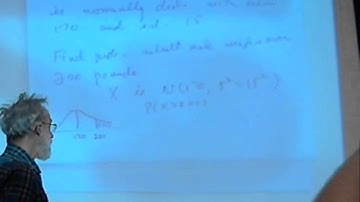 is normally dist. with mean
170 and sd 15
Find prob. adult male weighs over
200 pounds
X is N(170, σ² = 15²)
P(X > 200)
170 200